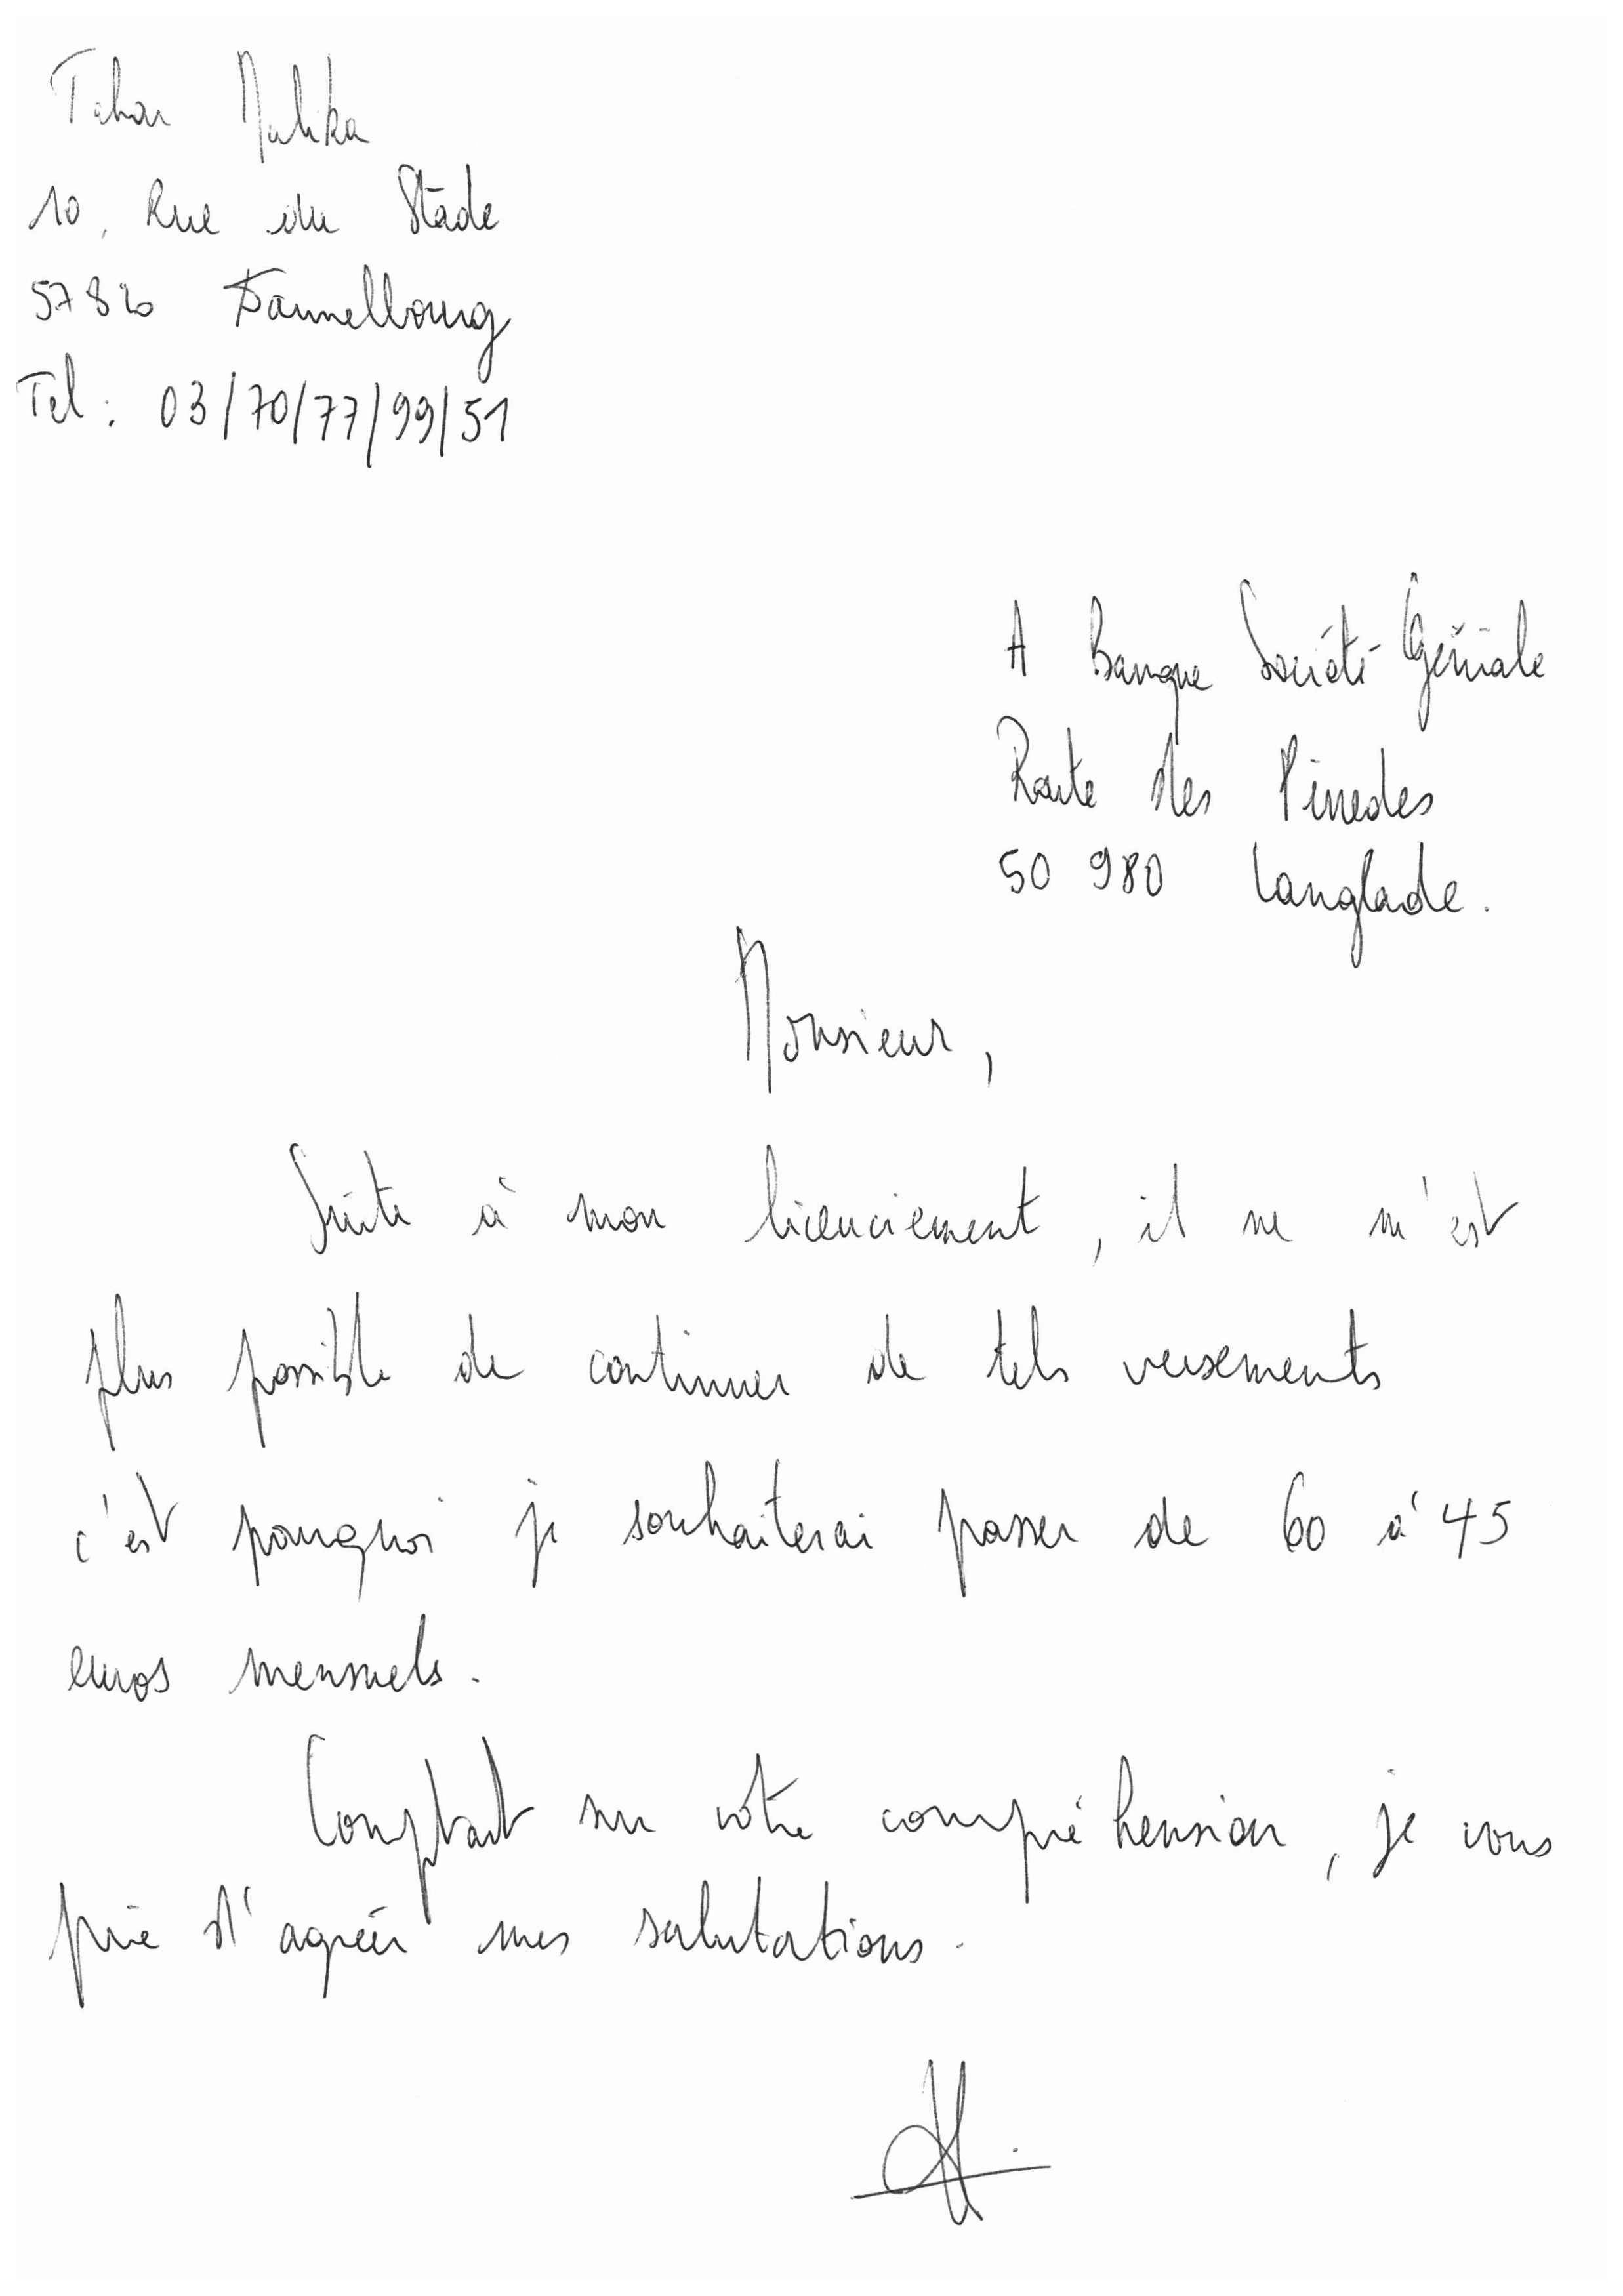 Tahar Malika
10, Rue du Stade
57820 Dannelbourg
Tel : 03/70/77/99/51
A Banque Société Géniale
Route des Pinedes
50 980 Langlade.
Monsieur,
Suite à mon licenciement, il ne m'est
plus possible de continuer de tels versements
c'est pourquoi je souhaiterai passer de 60 à 45
euros mensuels.
Comptant sur votre compréhension, je vous
prie d'agréer mes salutations.